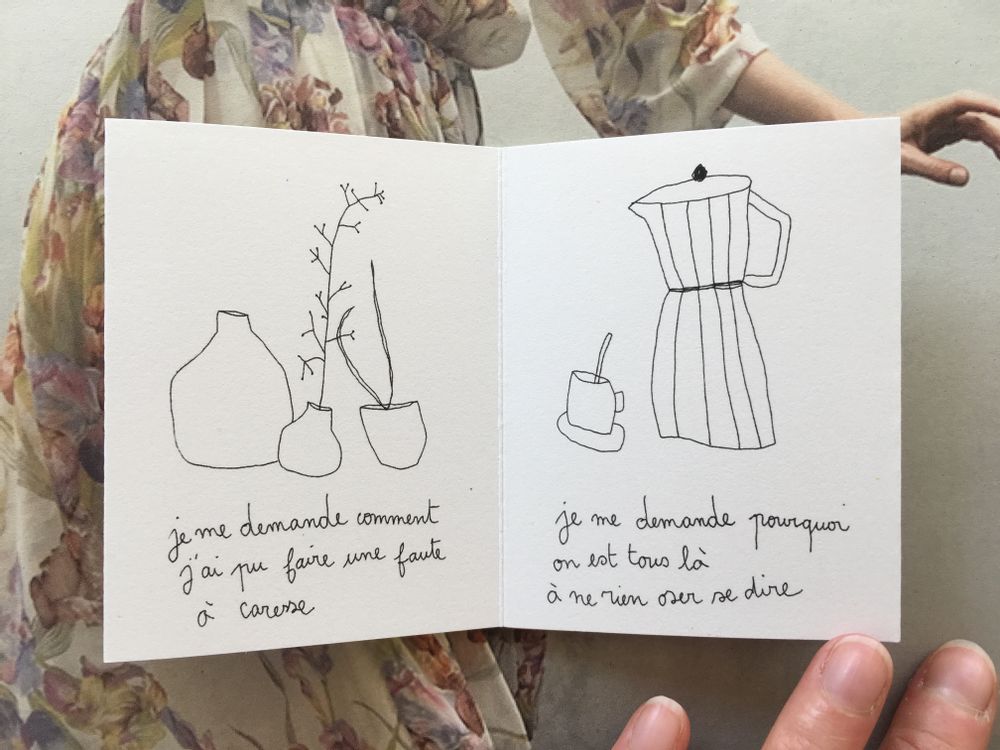 je me demande comment
j'ai pu faire une faute
à caresse
je me demande pourquoi
on est tous là
à ne rien oser se dire